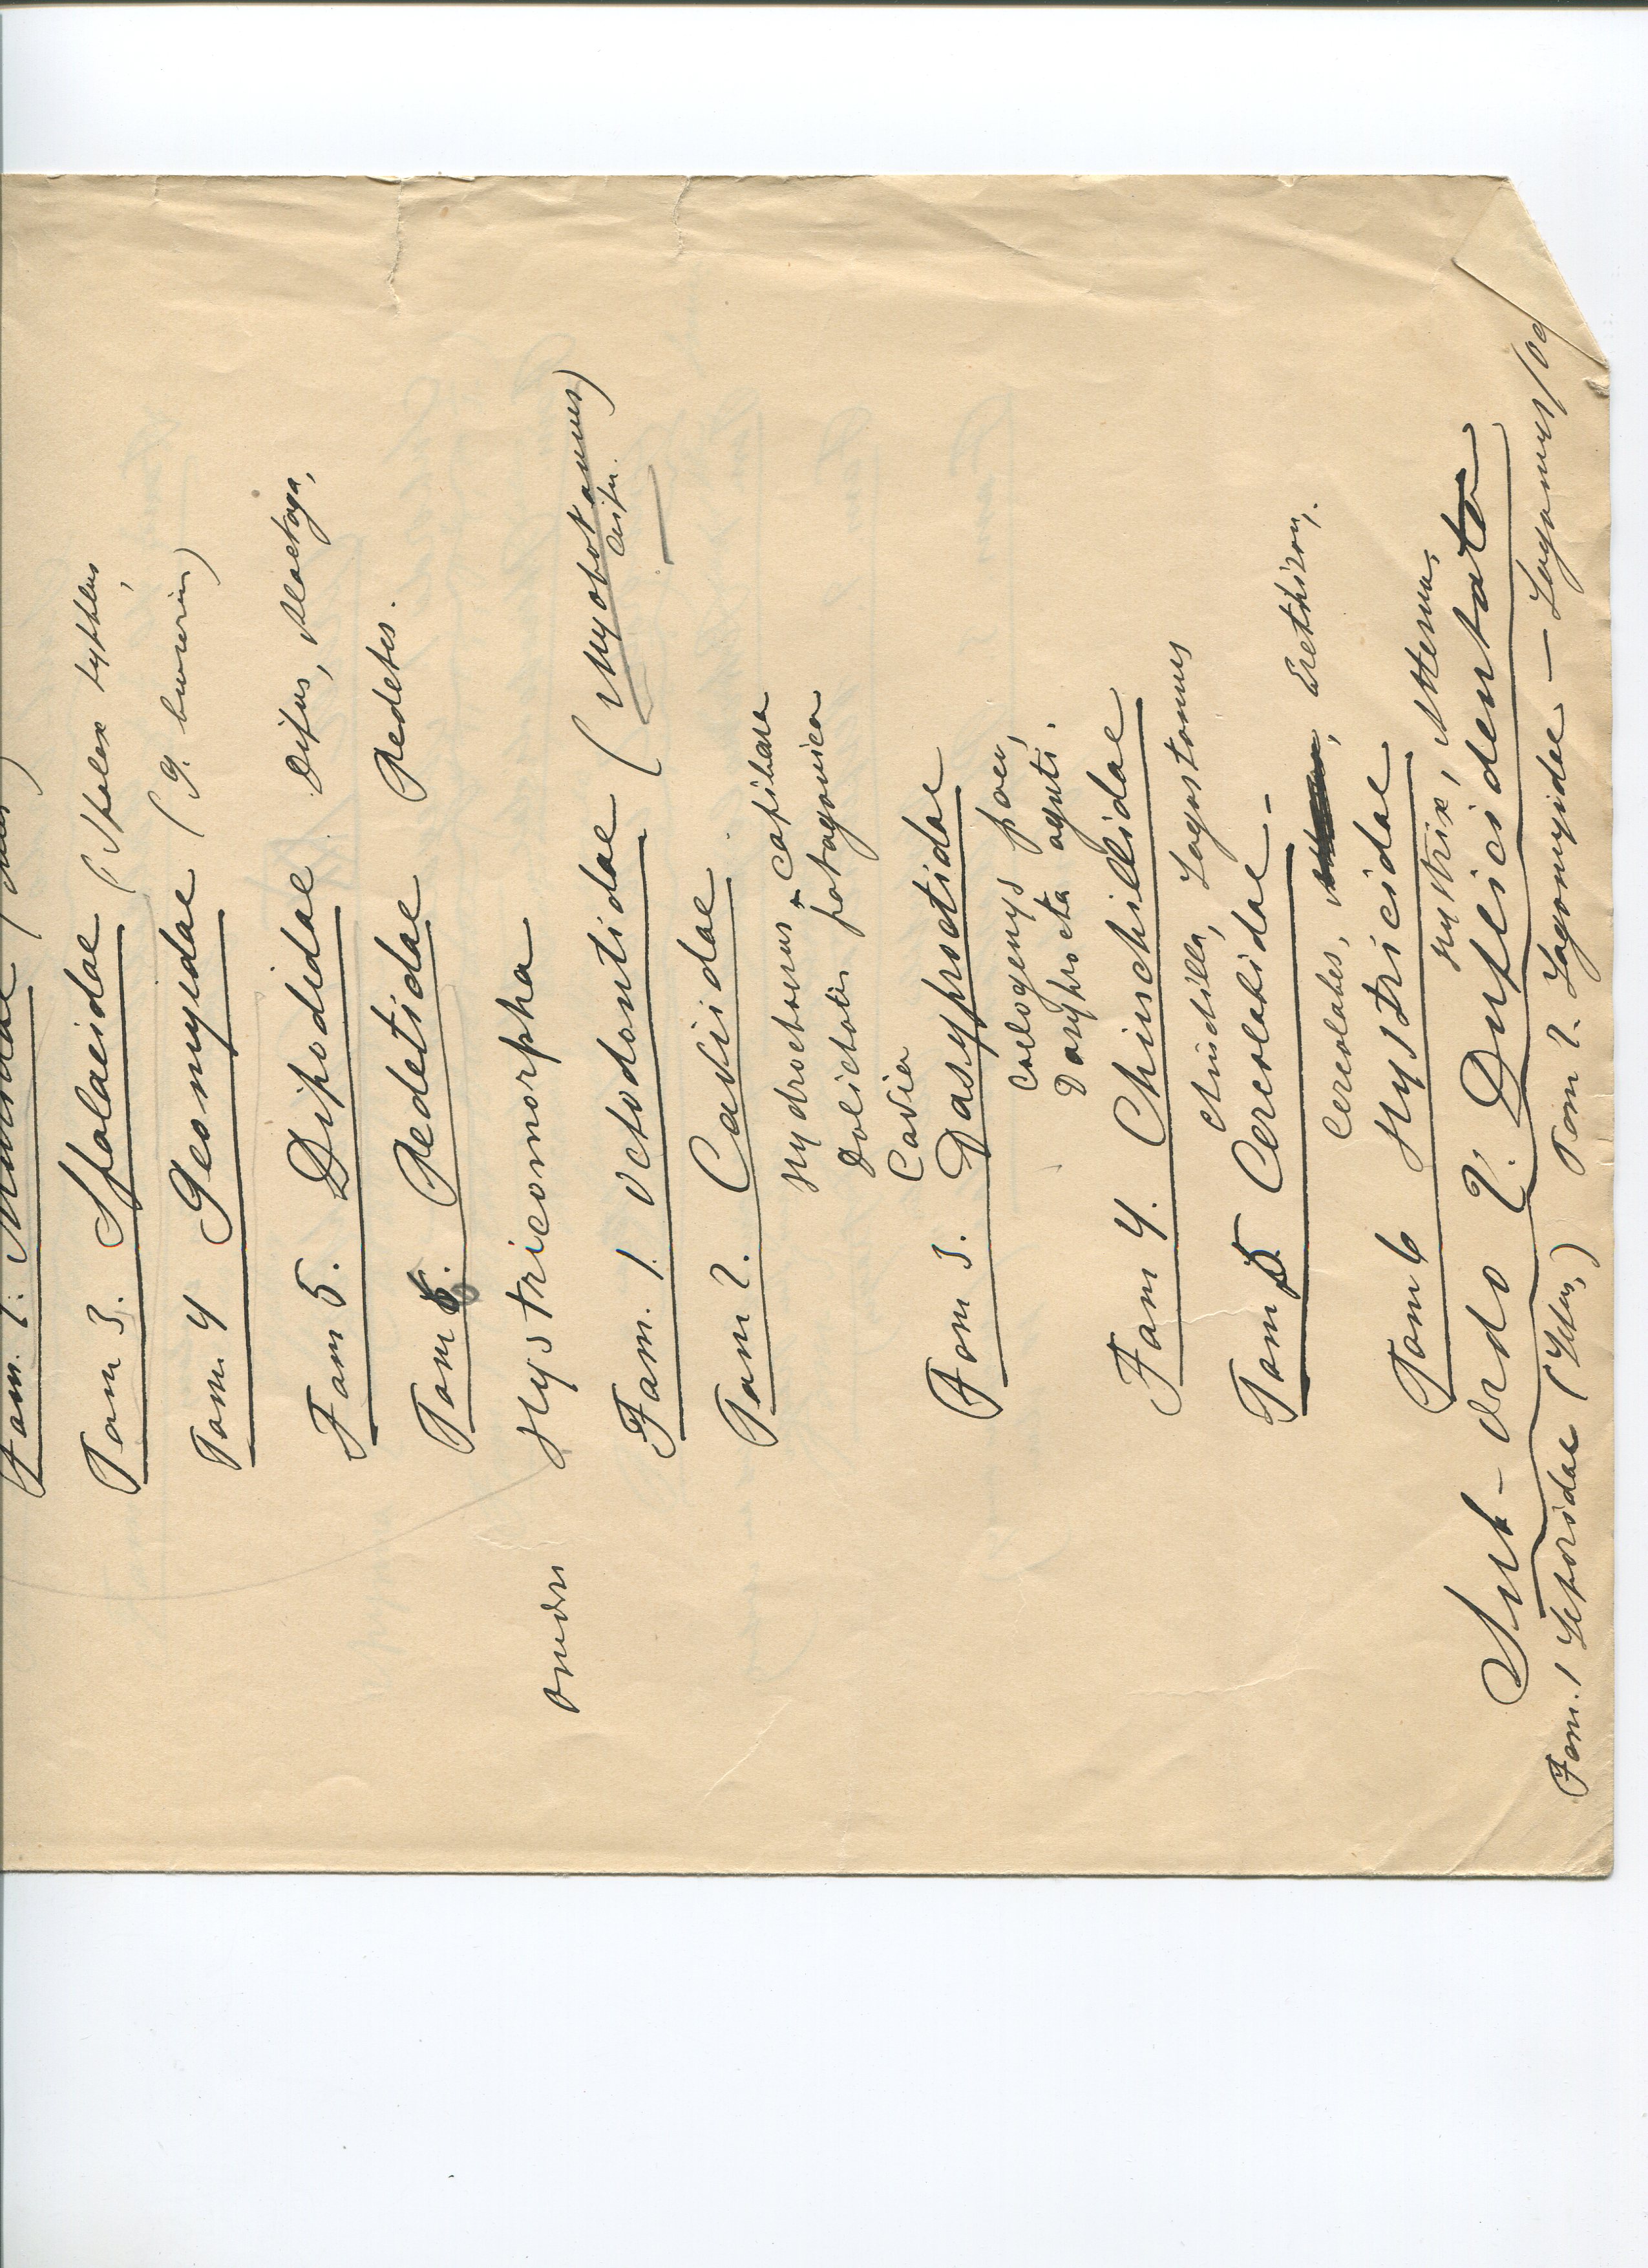 Fam. 2. Muridae (Mus)
Fam 3. Spalacidae (Spalax typhlus,
Fam 4 Geomyidae (G. bursarius)
Fam 5. Dipodidae Dipus, Alactaga,
Fam 6. Pedetidae Pedetes.
Hystricomorpha
Fam. 1. Octodontidae (Myopotamus)
Coipu.
Fam 2. Cavidae
Hydrochoerus capibara
Dolichotis patagonica
Cavia
Fam 3. Dasyproctidae
Coelogenys paca,
Dasyprocta aguti.
Fam 4. Chinchillidae
Chinchilla, Lagostomus
Fam 5 Cercolabidae -
Cercolabes, Erethizon,.
Fam 6 Hystricidae
Hystrix, Atherura,
Sub-ordo 2. Duplicidentata
Fam. 1 Leporidae (Lepus,) Fam 2. Lagomyidae — Lagomys/og